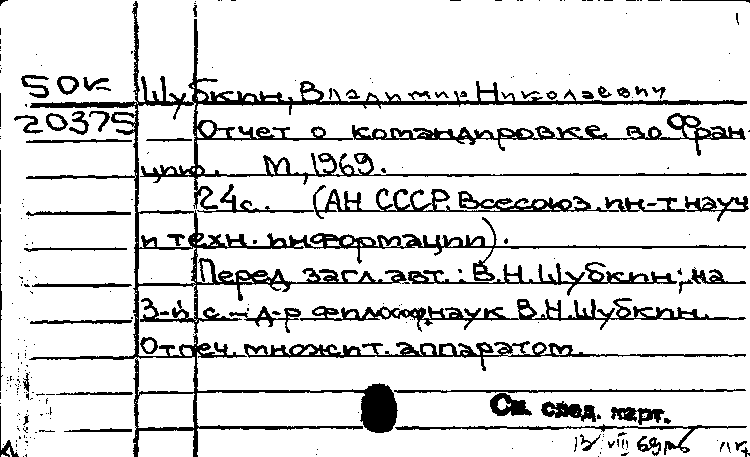 1
50к Шубкин, Владимир Николаевич
20375 Отчет о командировке во Фран-
цию. М., 1969.
24с. (АН СССР. Всесоюз. ин-т науч
и техн. информации).
Перед загл. авт.: В.Н. Шубкин; на
3-й с. – д-р философ. наук В.Н. Шубкин.
Отпеч. множит. аппаратом.
См. след. карт.
13/VIII 69